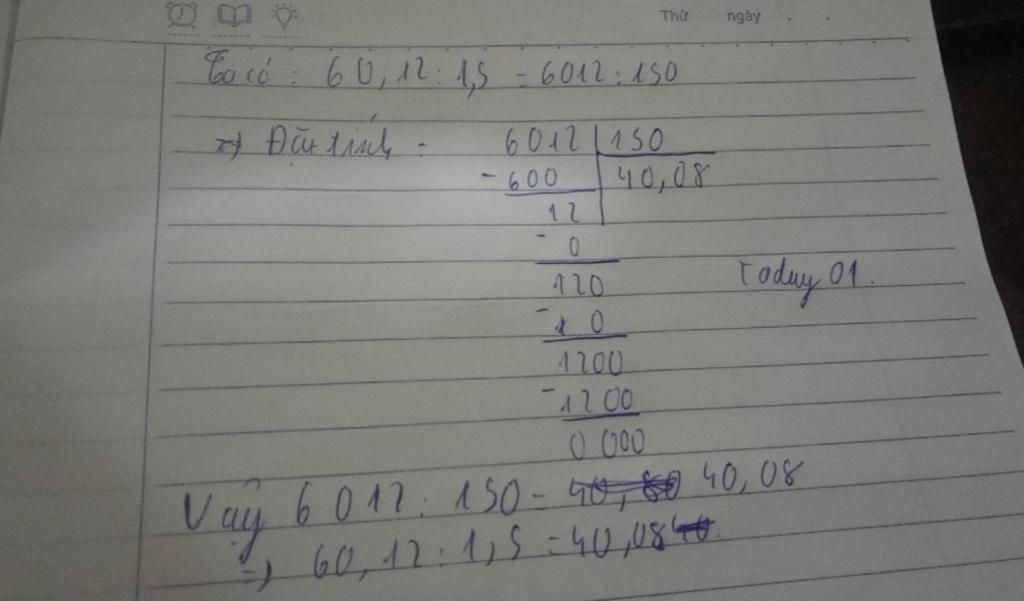 Thứ ngày . .
Ta có : 60,12 : 1,5 = 6012 : 150
=> Đặt tính :
6012 150
- 600 40,08
12
- 0
120
Today 01.
- 0
1200
- 1200
0 000
Vậy 6012 : 150 = 40,80 40,08
=> 60,12 : 1,5 = 40,08